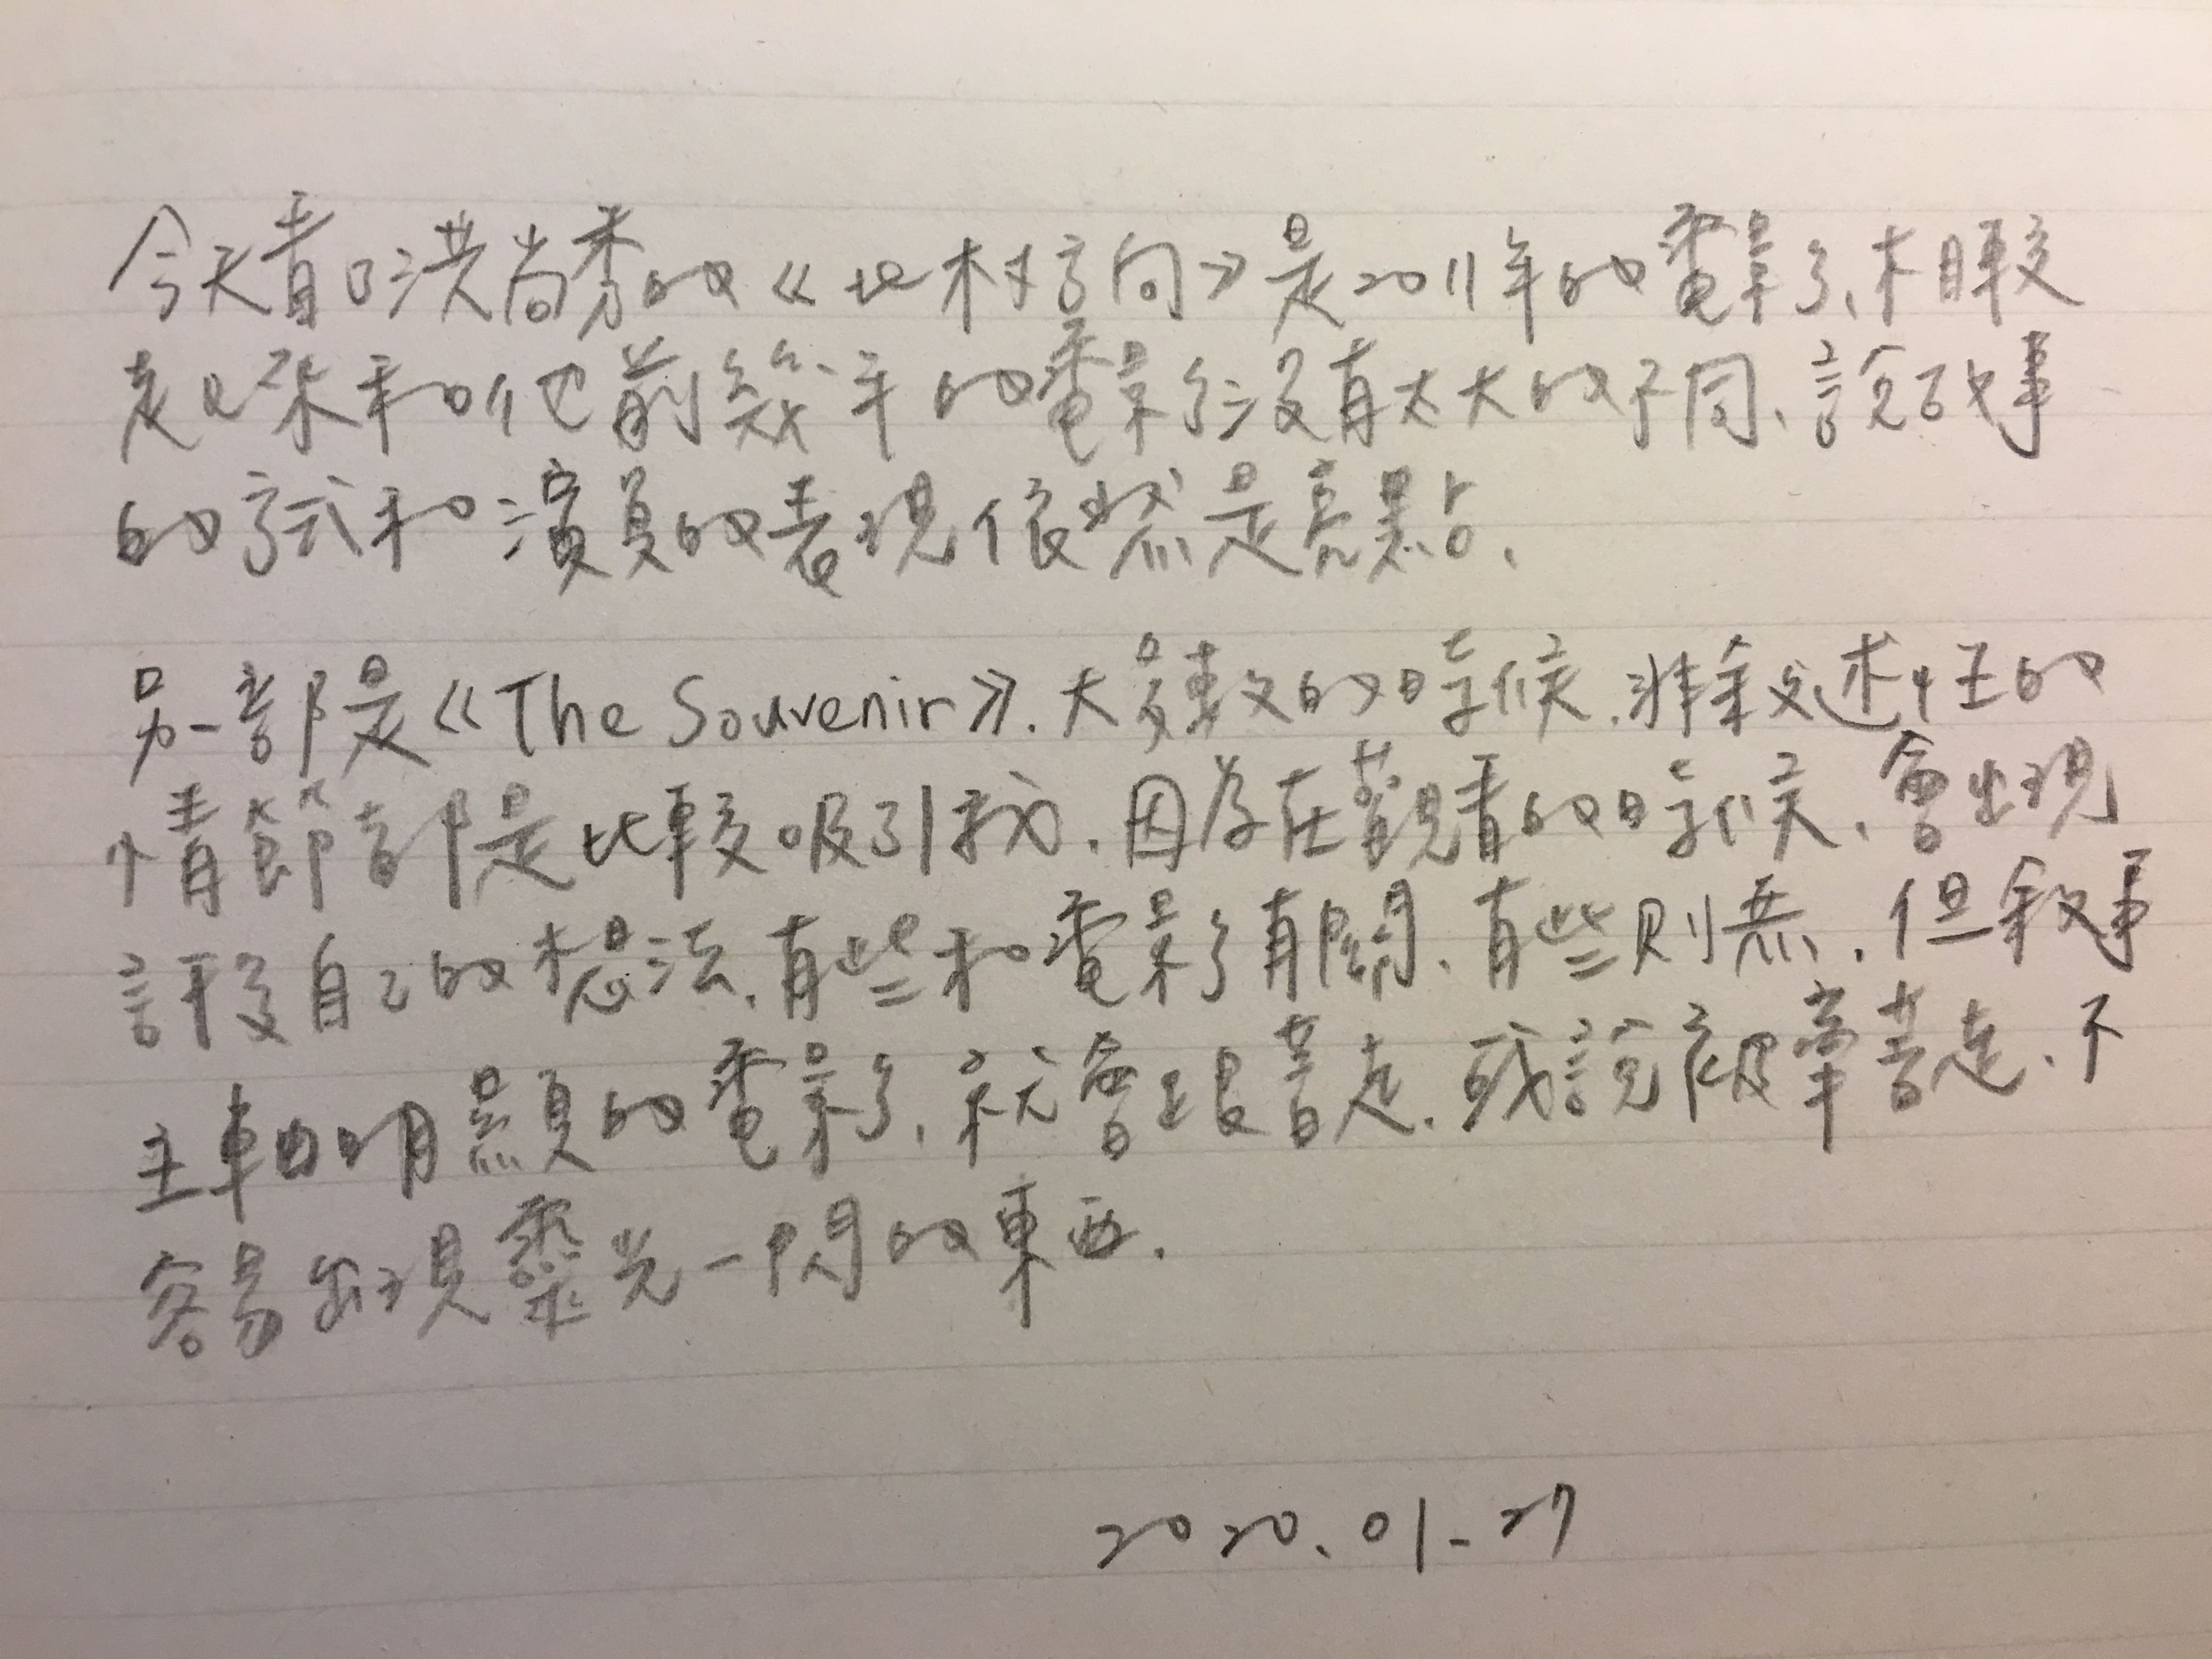 今天看口洪尚秀的《北村方向》是2011年的電影、相較
起來和他前幾年的電影沒有太大的不同、說故事
的方式和演員的表現依然是亮點、
另一部是《The Souvenir》. 大多數的時候、非敘述性的
情節都是比較吸引我. 因為在觀看的時候、會出現
許多自己的想法、有些和電影有關、有些則無. 但敘事
主軸明顯的電影、就會跟著走. 或說被牽著走、不
容易出現靈光一閃的東西.
2020.01.27